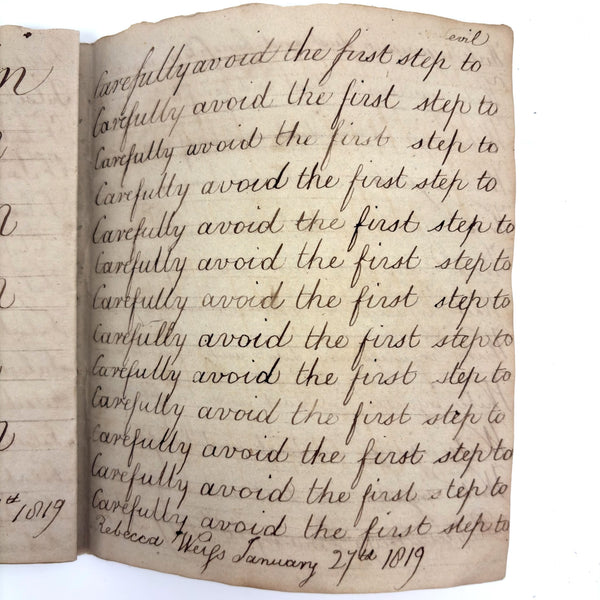 evil
Carefully avoid the first step to
Carefully avoid the first step to
Carefully avoid the first step to
Carefully avoid the first step to
Carefully avoid the first step to
Carefully avoid the first step to
Carefully avoid the first step to
Carefully avoid the first step to
Carefully avoid the first step to
Carefully avoid the first step to
Carefully avoid the first step to
Carefully avoid the first step to
Carefully avoid the first step to
Rebecca Weiſs January 27th 1819
1819